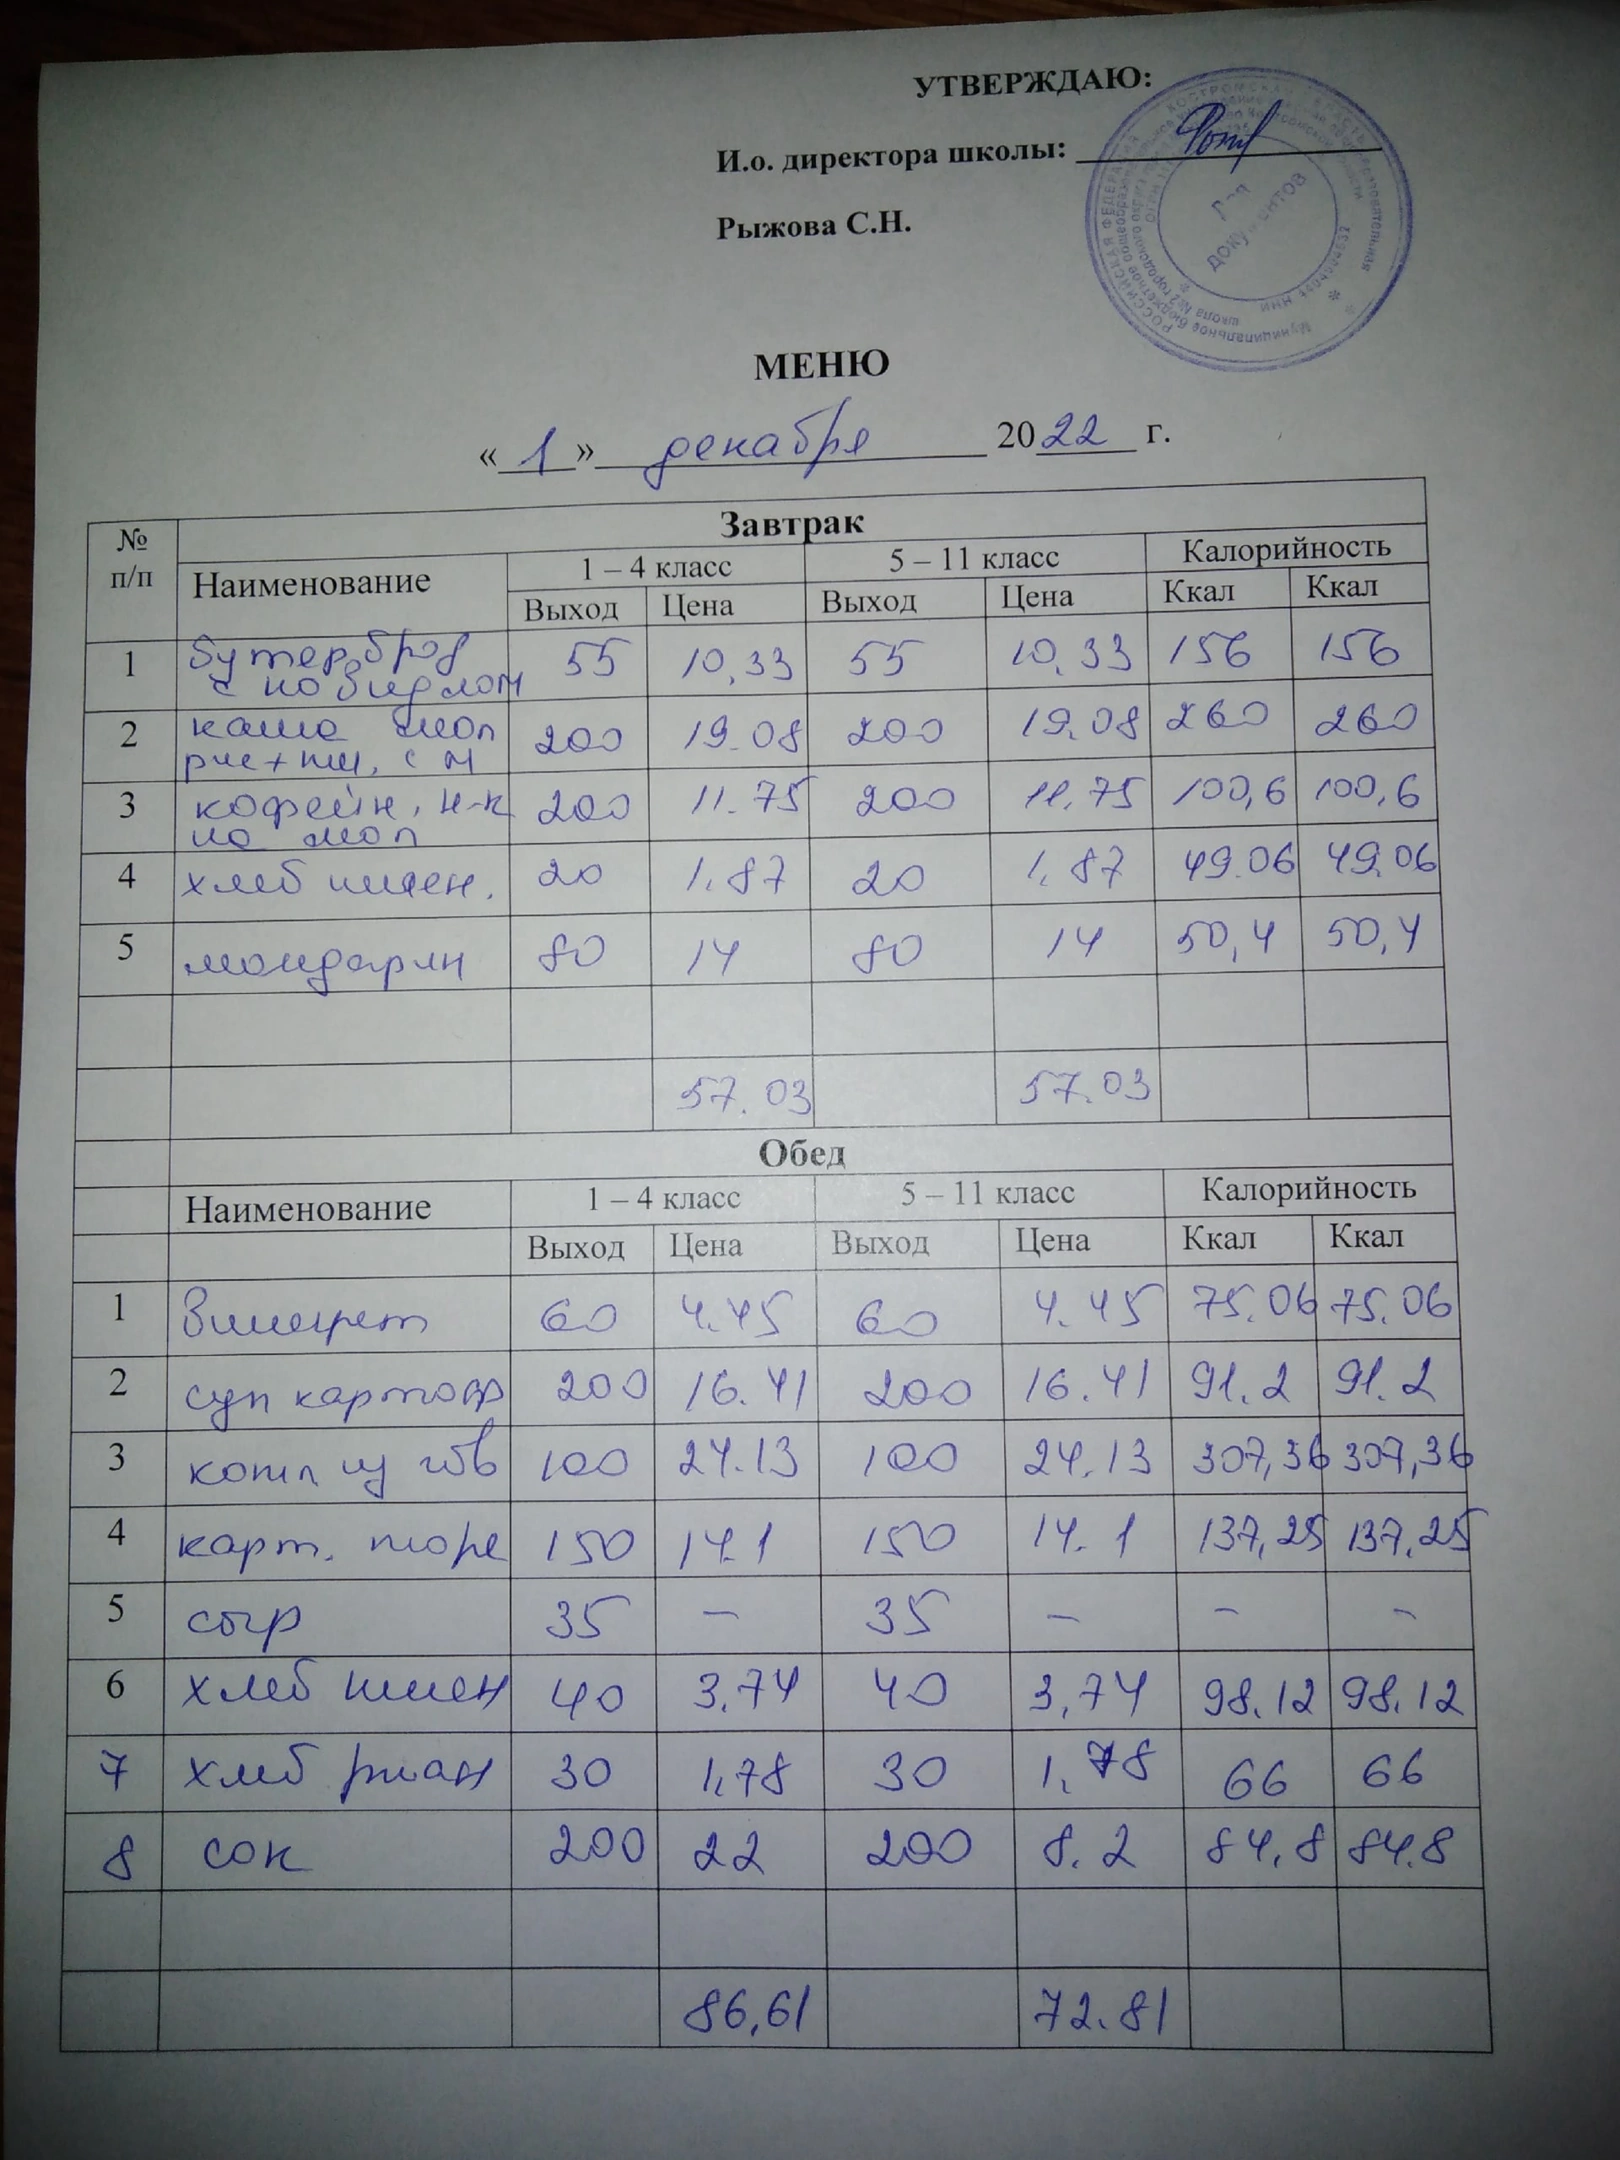 УТВЕРЖДАЮ:
И.о. директора школы:
Рыжова С.Н.
МЕНЮ
« 1 » декабря 2022 г.
№ п/п Завтрак
Наименование 1 – 4 класс 5 – 11 класс Калорийность
Выход Цена Выход Цена Ккал Ккал
1 бутерброд с повидлом 55 10,33 55 10,33 156 156
2 каша мол рис+пш, с м 200 19.08 200 19.08 260 260
3 кофейн, н-к на мол 200 11.75 200 11,75 100,6 100,6
4 хлеб пшен. 20 1,87 20 1,87 49.06 49,06
5 мандарин 80 14 80 14 50,4 50,4
57.03 57.03
Обед
Наименование 1 – 4 класс 5 – 11 класс Калорийность
Выход Цена Выход Цена Ккал Ккал
1 Винегрет 60 4.45 60 4.45 75.06 75.06
2 суп картоф 200 16.41 200 16.41 91.2 91.2
3 котл из гов 100 24.13 100 24.13 307,36 307,36
4 карт. пюре 150 14.1 150 14.1 137,25 137,25
5 сыр 35 – 35 – – –
6 хлеб пшен 40 3,74 40 3,74 98.12 98.12
7 хлеб ржан 30 1,78 30 1,78 66 66
8 сок 200 22 200 8.2 84,8 84.8
86,61 72.81
РОССИЙСКАЯ ФЕДЕРАЦИЯ * КОСТРОМСКАЯ ОБЛАСТЬ
документов